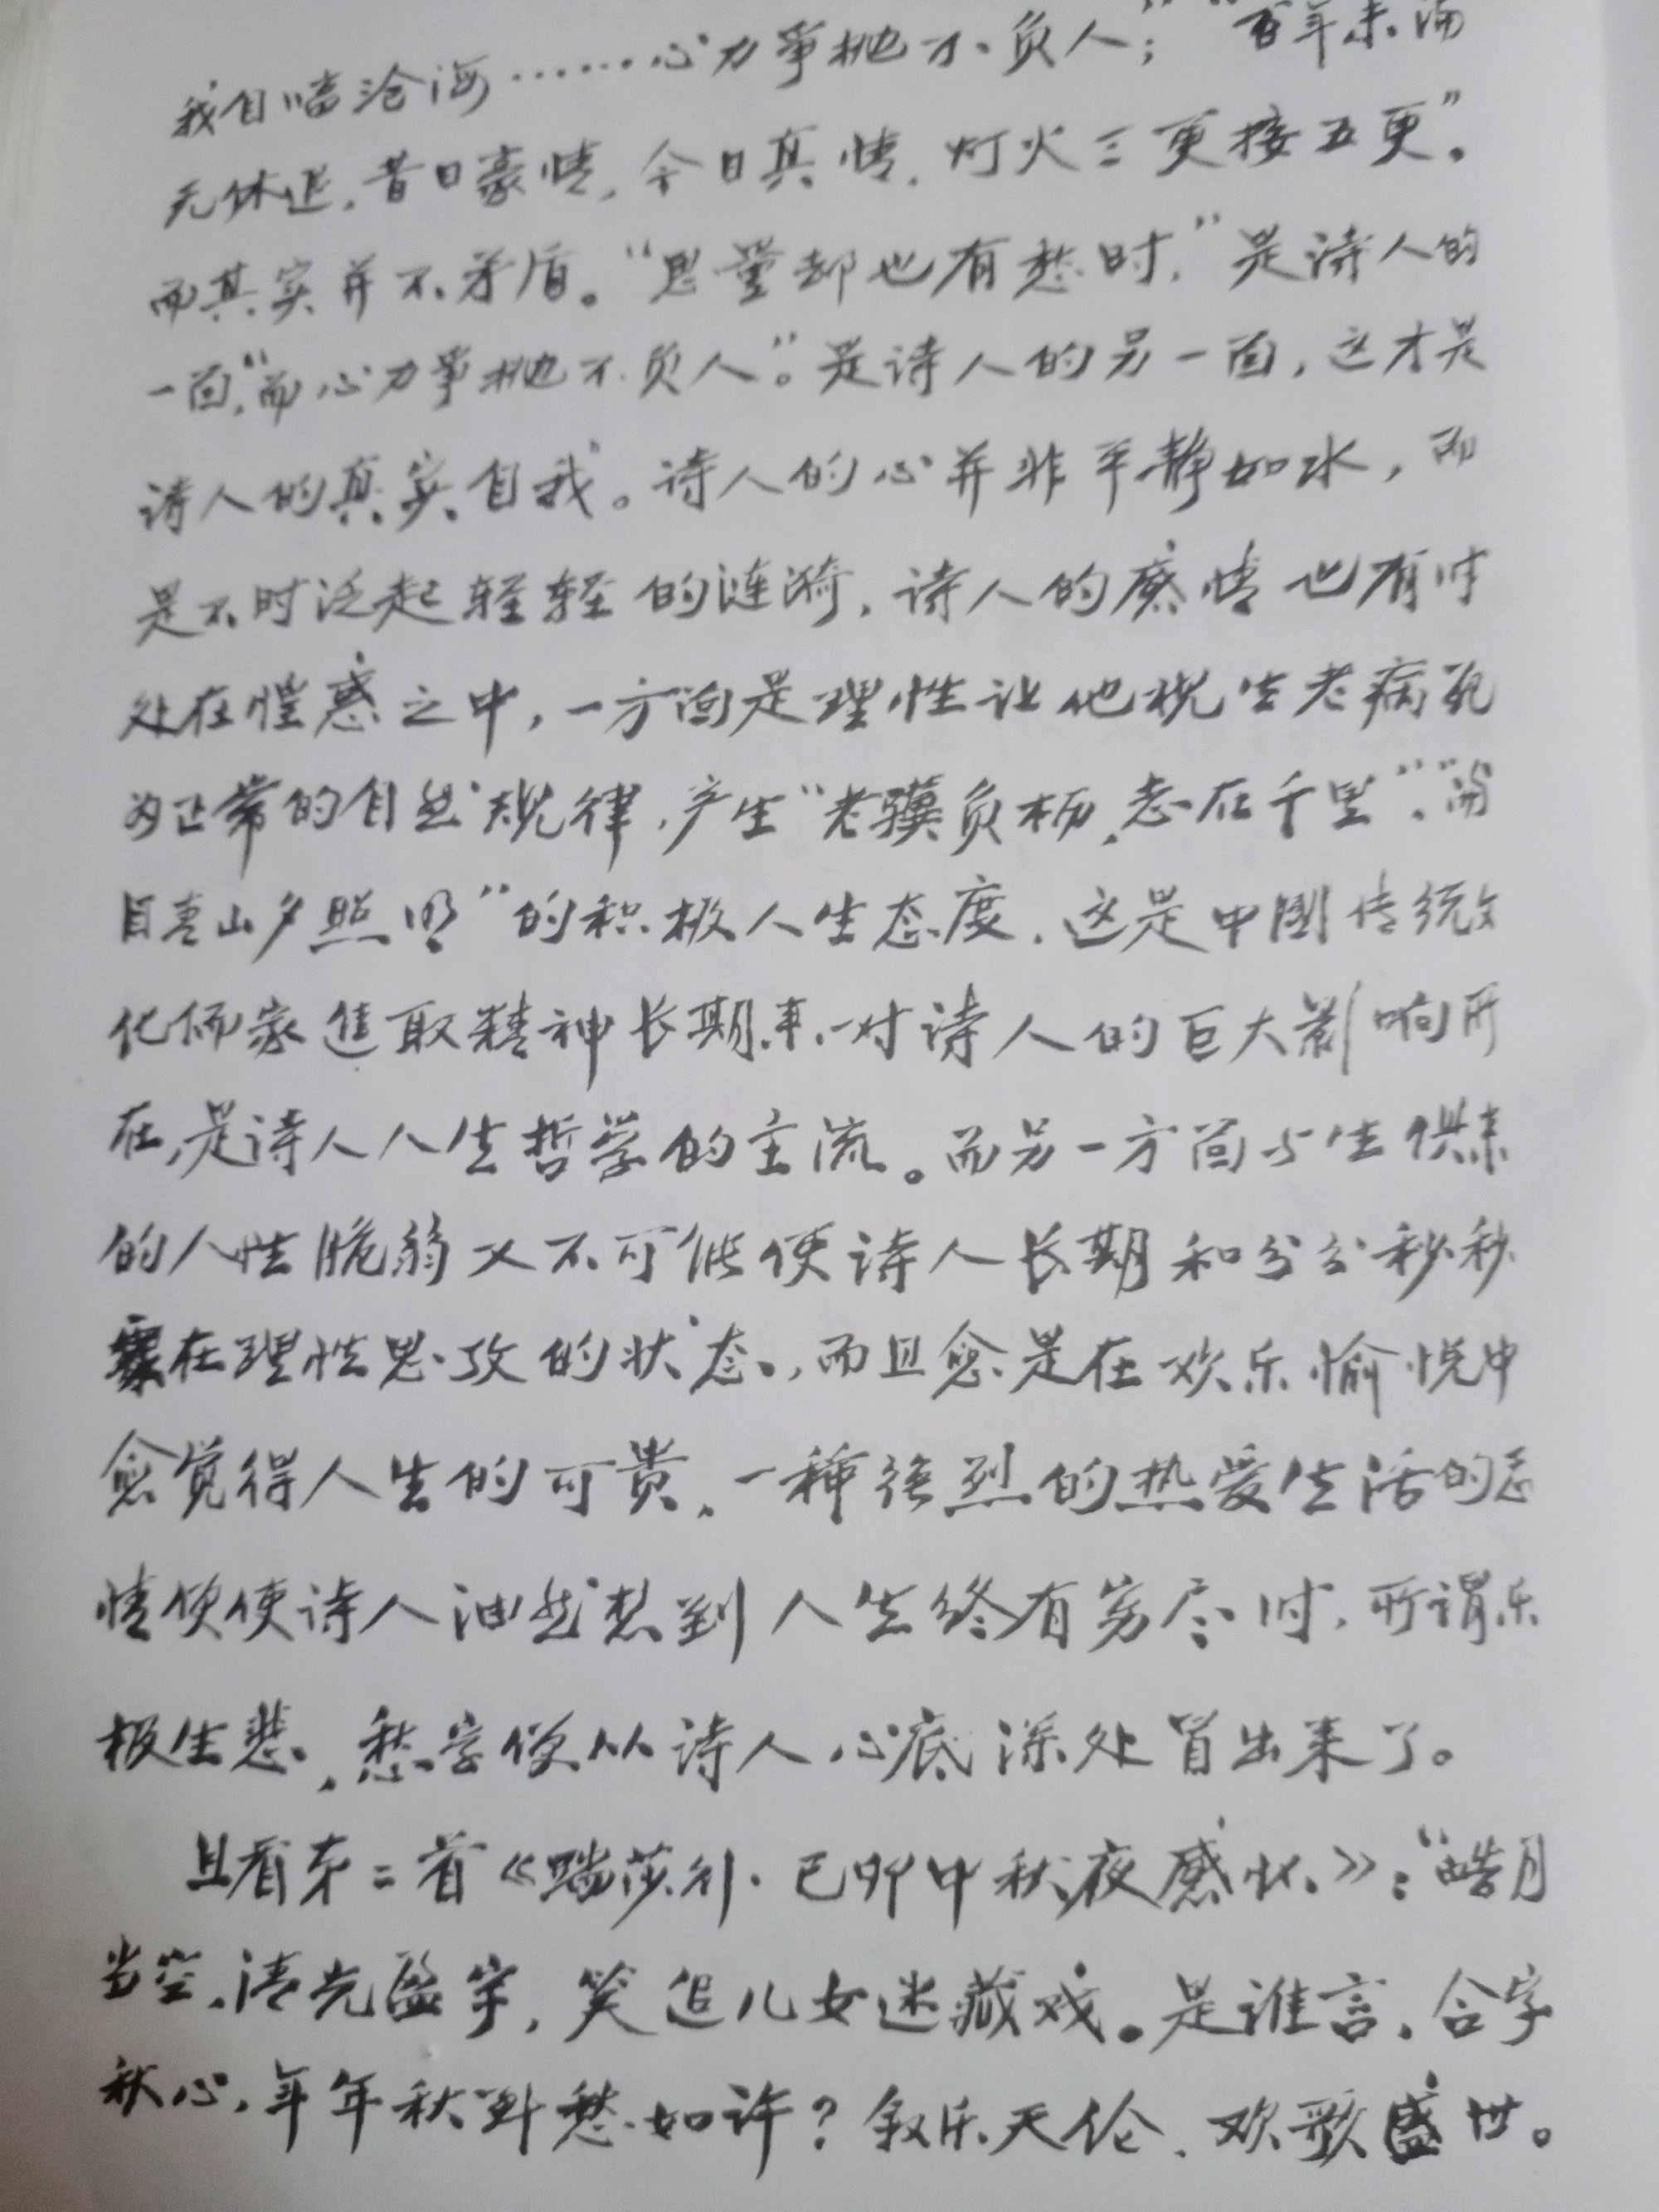 我自临沧海……心力争抛不负人；”“百年未满
无休退，昔日豪情，今日真情，灯火三更接五更”。
而其实并不矛盾。“思量却也有愁时，”是诗人的
一面，“而心力争抛不负人”。是诗人的另一面，这才是
诗人的真实自我。诗人的心并非平静如水，而
是不时泛起轻轻的涟漪，诗人的感情也有时
处在惶惑之中，一方面是理性让他视生老病死
为正常的自然规律，产生“老骥负枥，志在千里”、“满
目青山夕照明”的积极人生态度，这是中國传统文
化儒家进取精神长期来对诗人的巨大影响所
在，是诗人人生哲学的主流。而另一方面与生俱来
的人性脆弱又不可能使诗人长期和分分秒秒
在理性思考的状态，而且愈是在欢乐愉悦中
愈觉得人生的可贵，一種强烈的热爱生活的
情便使诗人油然想到人生终有穷尽时，所谓乐
极生悲，愁字便从诗人心底深处冒出来了。
且看第二首《踏莎行·己卯中秋夜感怀》：“皓月
当空，清光盈宇，笑追儿女迷藏戏。是谁言，合字
秋心，年年秋半愁如许？叙乐天伦，欢歌盛世。